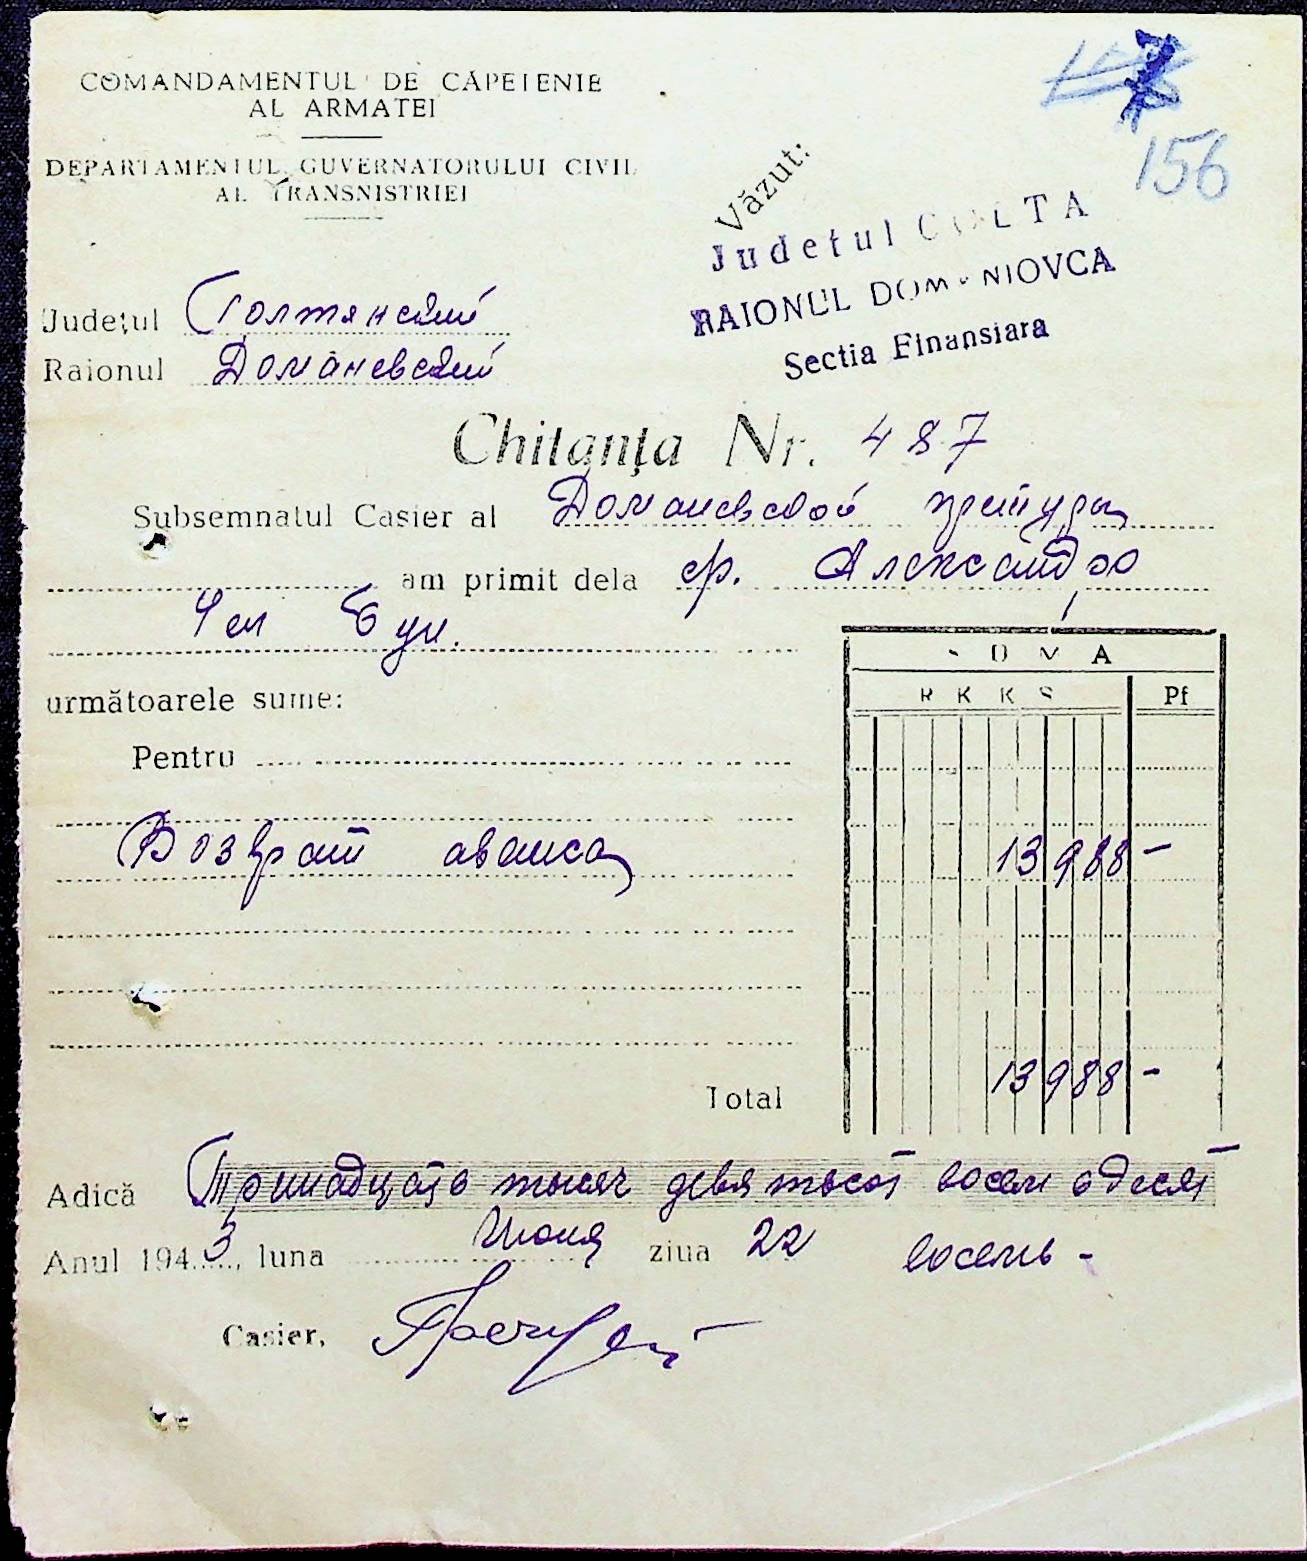 COMANDAMENTUL DE CĂPETENIE
AL ARMATEI
DEPARTAMENTUL GUVERNATORULUI CIVIL
AL TRANSNISTRIEI
156
Văzut:
Judetul GOLTA
RAIONUL DOMANIOVCA
Sectia Finansiara
Județul Голтянский
Raionul Доманевский
Chitanța Nr. 487
Subsemnatul Casier al Доманевской претуры
am primit dela Александр
SUMA
următoarele sume:
R K K S Pf
Pentru
Возврат аванса 13988 -
Total 13988 -
Adică Тринадцать тысяч девятьсот восемьдесят
Anul 1943, luna Июня ziua 22 восемь -
Casier,